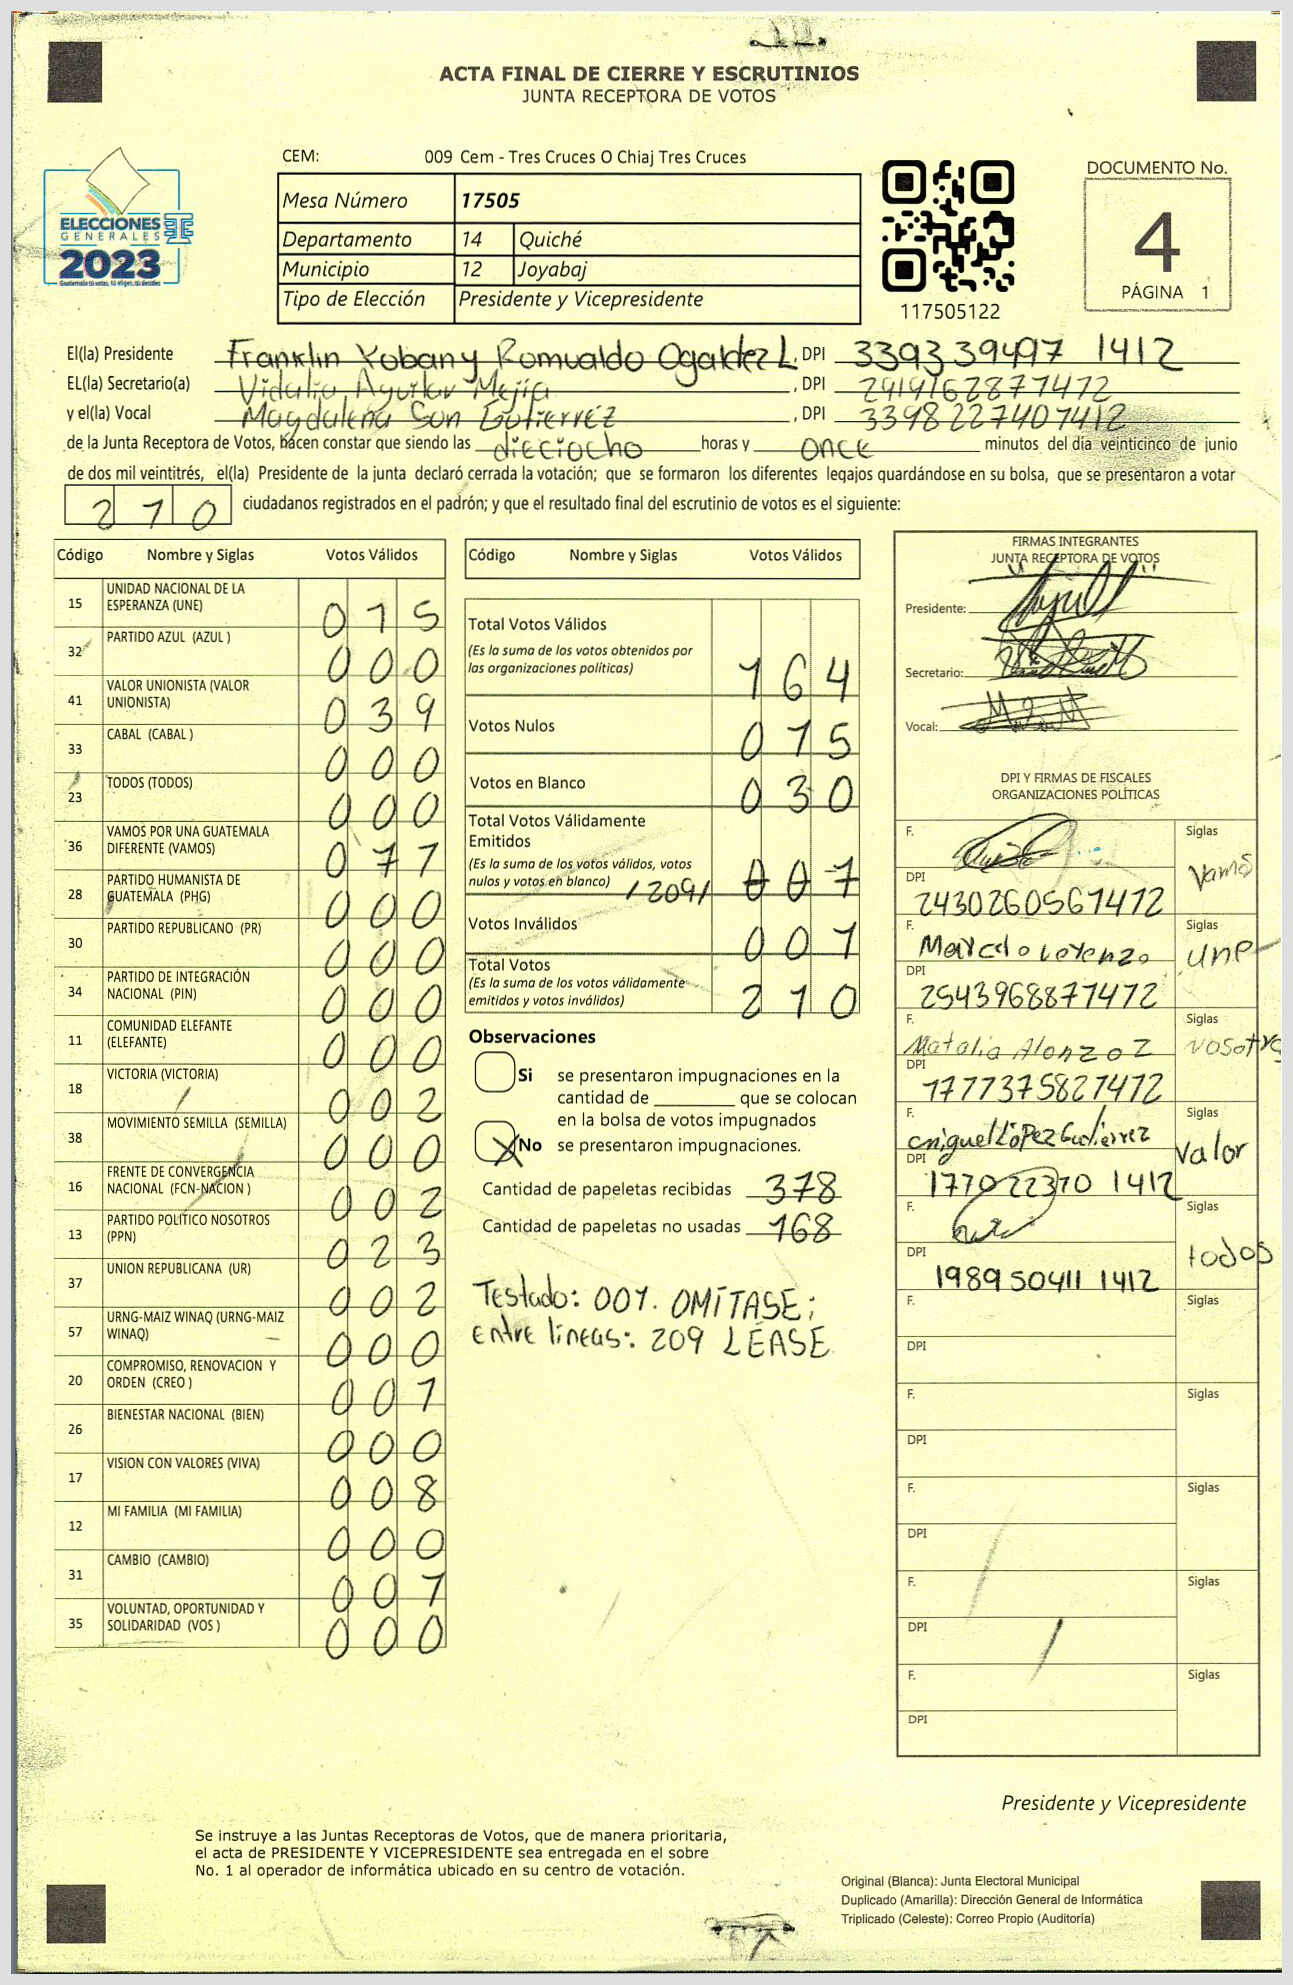 ACTA FINAL DE CIERRE Y ESCRUTINIOS
JUNTA RECEPTORA DE VOTOS
CEM: 009 Cem - Tres Cruces O Chiaj Tres Cruces
ELECCIONES
GENERALES
2023
Guatemala tú votas, tú eliges, tú decides
Mesa Número 17505
Departamento 14 Quiché
Municipio 12 Joyabaj
Tipo de Elección Presidente y Vicepresidente
117505122
DOCUMENTO No.
4
PÁGINA 1
El(la) Presidente Franklin Yobany Romualdo Ogaldez L, DPI 3393 39497 1412
EL(la) Secretario(a) Vidalia Aguilar Mejía, DPI 2919162871412
y el(la) Vocal Magdalena Son Gutierréz, DPI 3398227401412
de la Junta Receptora de Votos, hacen constar que siendo las dieciocho horas y once minutos del día veinticinco de junio
de dos mil veintitrés, el(la) Presidente de la junta declaró cerrada la votación; que se formaron los diferentes legajos quardándose en su bolsa, que se presentaron a votar
210 ciudadanos registrados en el padrón; y que el resultado final del escrutinio de votos es el siguiente:
Código Nombre y Siglas Votos Válidos
15 UNIDAD NACIONAL DE LA ESPERANZA (UNE) 015
32 PARTIDO AZUL (AZUL ) 000
41 VALOR UNIONISTA (VALOR UNIONISTA) 039
33 CABAL (CABAL ) 000
23 TODOS (TODOS) 000
36 VAMOS POR UNA GUATEMALA DIFERENTE (VAMOS) 071
28 PARTIDO HUMANISTA DE GUATEMALA (PHG) 000
30 PARTIDO REPUBLICANO (PR) 000
34 PARTIDO DE INTEGRACIÓN NACIONAL (PIN) 000
11 COMUNIDAD ELEFANTE (ELEFANTE) 000
18 VICTORIA (VICTORIA) 002
38 MOVIMIENTO SEMILLA (SEMILLA) 000
16 FRENTE DE CONVERGENCIA NACIONAL (FCN-NACION ) 002
13 PARTIDO POLITICO NOSOTROS (PPN) 023
37 UNION REPUBLICANA (UR) 002
57 URNG-MAIZ WINAQ (URNG-MAIZ WINAQ) 000
20 COMPROMISO, RENOVACION Y ORDEN (CREO ) 001
26 BIENESTAR NACIONAL (BIEN) 000
17 VISION CON VALORES (VIVA) 008
12 MI FAMILIA (MI FAMILIA) 000
31 CAMBIO (CAMBIO) 001
35 VOLUNTAD, OPORTUNIDAD Y SOLIDARIDAD (VOS ) 000
Código Nombre y Siglas Votos Válidos
Total Votos Válidos
(Es la suma de los votos obtenidos por
las organizaciones políticas) 164
Votos Nulos 015
Votos en Blanco 030
Total Votos Válidamente
Emitidos
(Es la suma de los votos válidos, votos
nulos y votos en blanco) /209/ 001
Votos Inválidos 001
Total Votos
(Es la suma de los votos válidamente
emitidos y votos inválidos) 210
Observaciones
Si se presentaron impugnaciones en la
cantidad de ________ que se colocan
en la bolsa de votos impugnados
X No se presentaron impugnaciones.
Cantidad de papeletas recibidas 378
Cantidad de papeletas no usadas 168
Testado: 001. OMÍTASE;
entre líneas: 209 LÉASE
FIRMAS INTEGRANTES
JUNTA RECEPTORA DE VOTOS
Presidente:
Secretario:
Vocal:
DPI Y FIRMAS DE FISCALES
ORGANIZACIONES POLÍTICAS
F. Siglas Vamos
DPI 2430260561412
F. Marcelo Lorenzo Siglas une
DPI 2543968871412
F. Matalia Alonzo Z Siglas Nosotros
DPI 1777375821412
F. miguel López Gutiérrez Siglas Valor
DPI 1770 22370 1412
F. Siglas todos
DPI 1989 50411 1412
F. Siglas
DPI
F. Siglas
DPI
F. Siglas
DPI
F. Siglas
DPI
F. Siglas
DPI
Presidente y Vicepresidente
Se instruye a las Juntas Receptoras de Votos, que de manera prioritaria,
el acta de PRESIDENTE Y VICEPRESIDENTE sea entregada en el sobre
No. 1 al operador de informática ubicado en su centro de votación.
Original (Blanca): Junta Electoral Municipal
Duplicado (Amarilla): Dirección General de Informática
Triplicado (Celeste): Correo Propio (Auditoría)